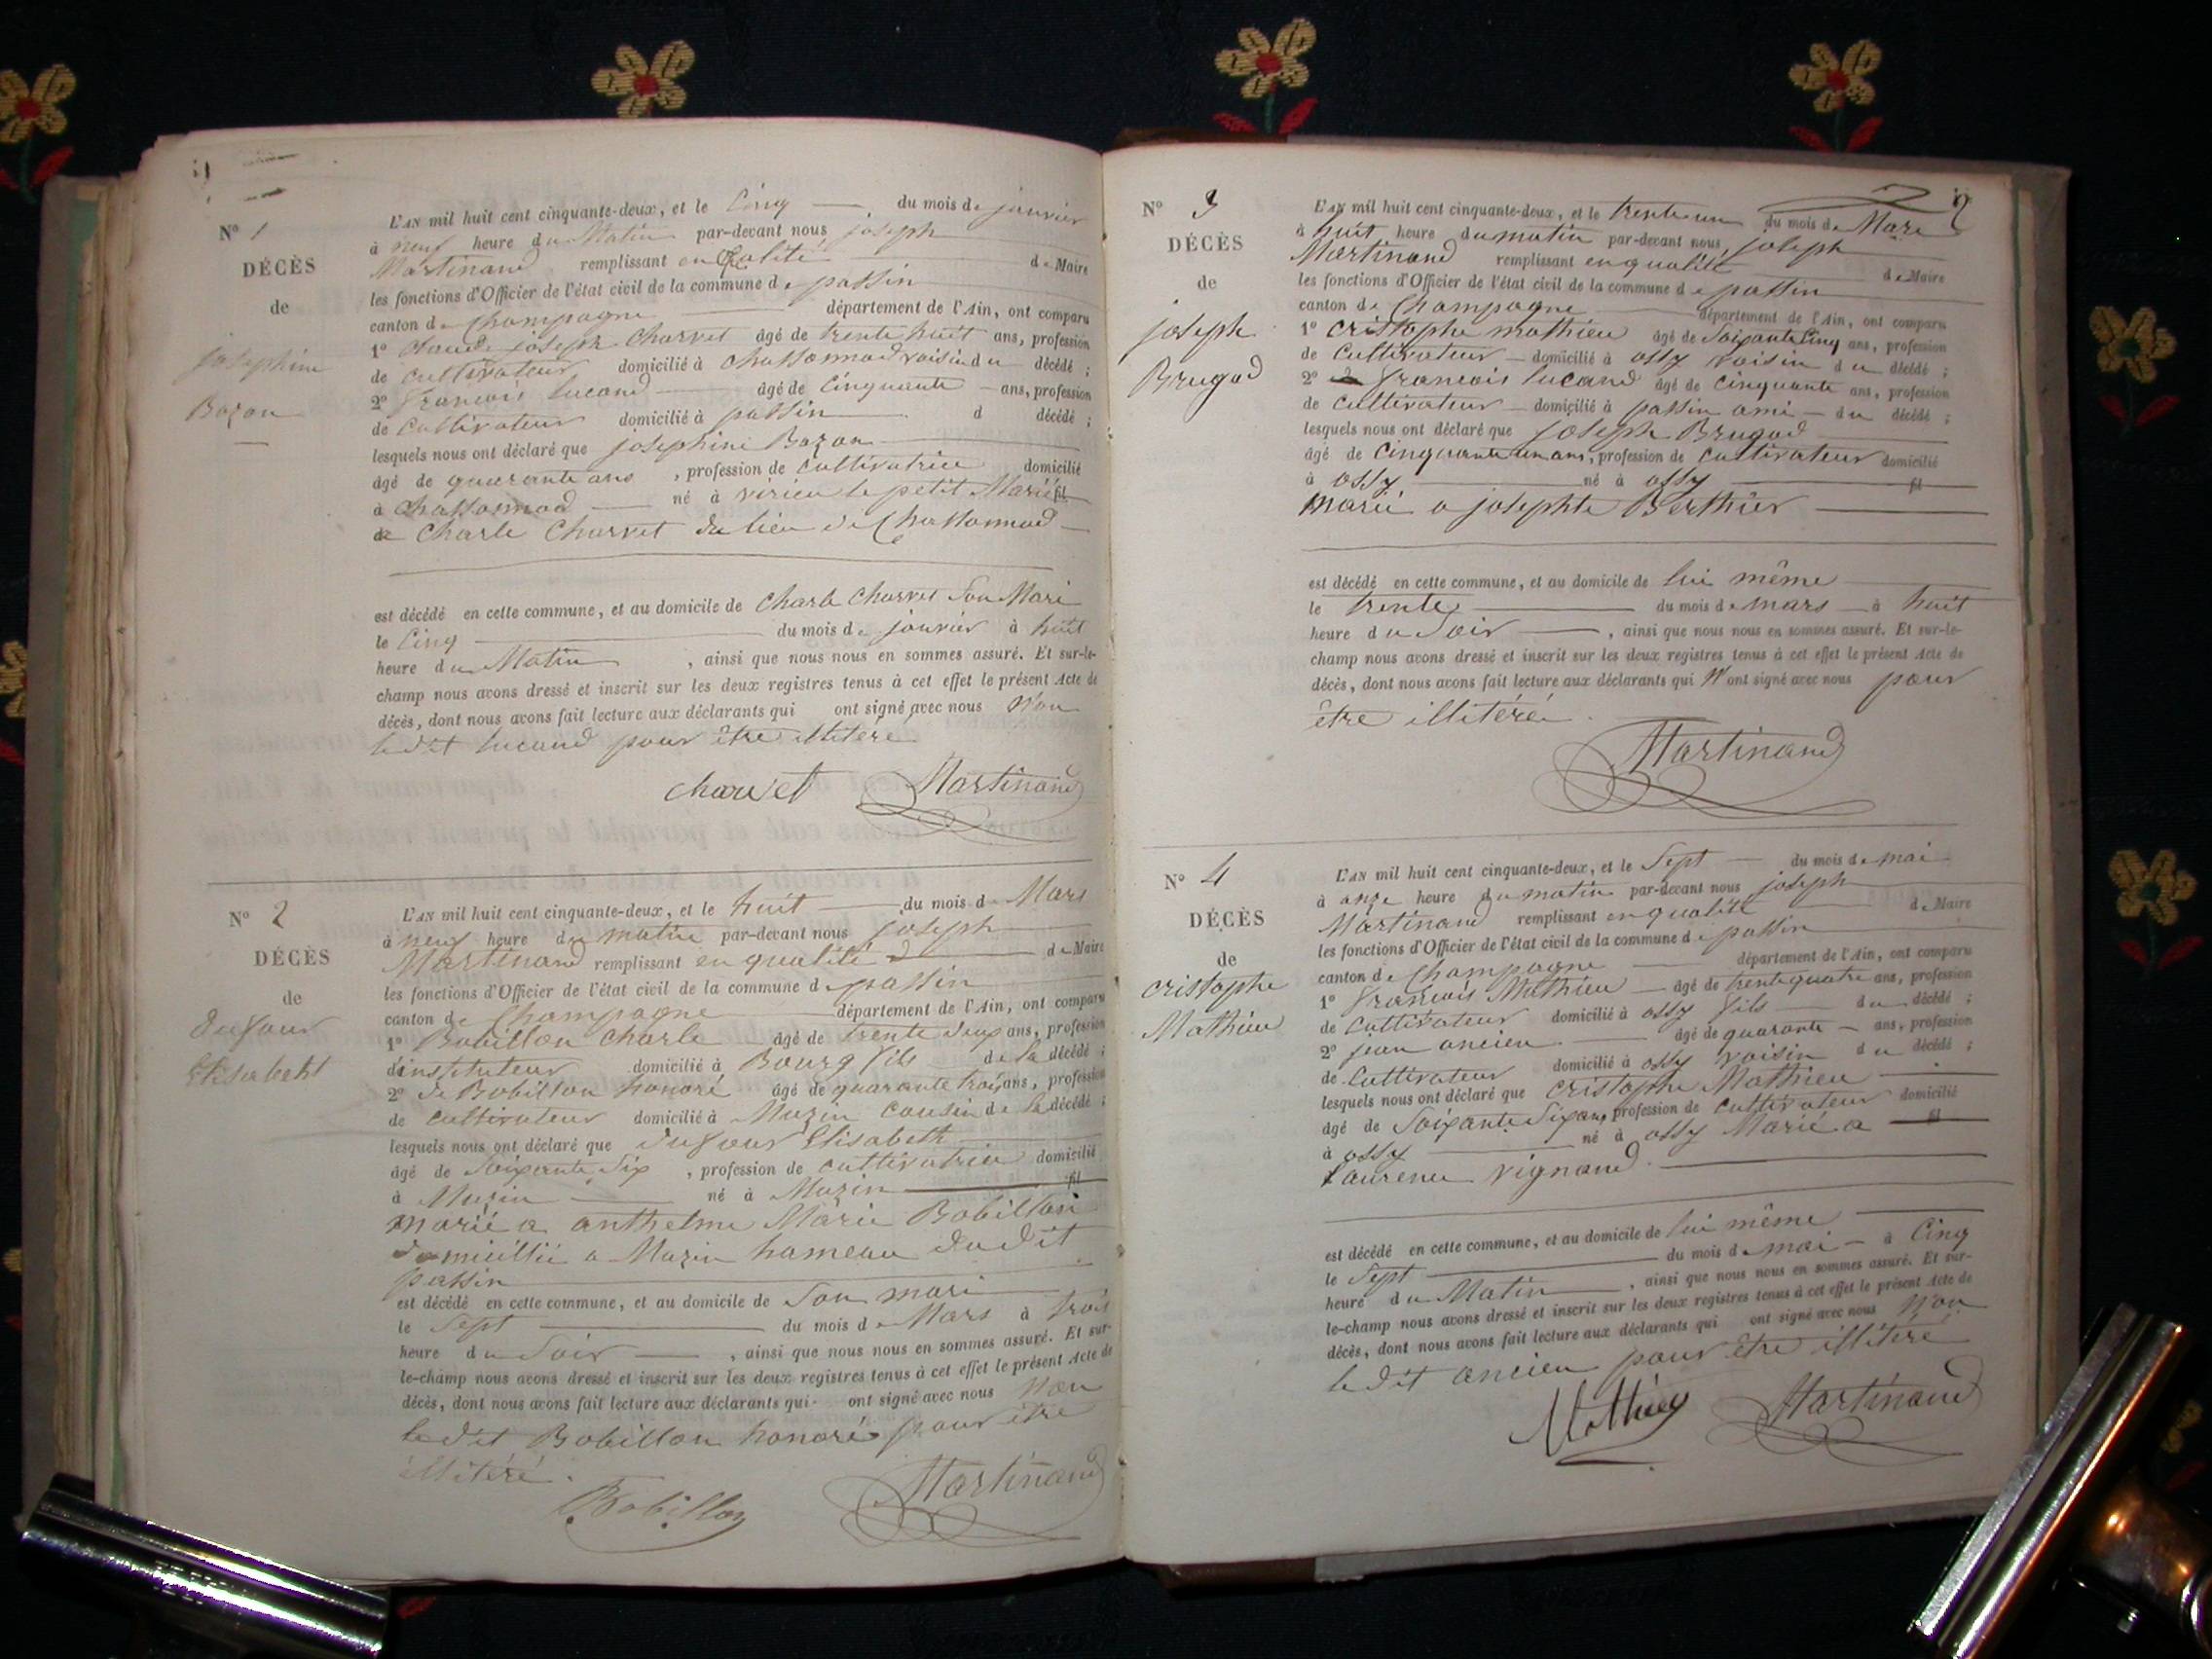 N° 1
DÉCÈS
de
Josephine
Bozon
L'AN mil huit cent cinquante-deux, et le Cinq du mois de janvier
à neuf heure du Matin par-devant nous joseph
Martinand remplissant en qualité de Maire
les fonctions d'Officier de l'état civil de la commune de passin
canton de Champagne département de l'Ain, ont comparu
1° Claude joseph Charvet âgé de trente huit ans, profession
de cultivateur domicilié à Chassonnod voisin du décédé ;
2° françois lucand âgé de Cinquante ans, profession
de Cultivateur domicilié à passin d décédé ;
lesquels nous ont déclaré que josephine Bozon
âgé de quarante ans , profession de cultivatrice domicilié
à Chassonnod né à virieu le petit Marié fil
de Charle Charvet du lieu de Chassonnod
est décédé en cette commune, et au domicile de Charle Charvet Son Mari
le Cinq du mois de janvier à huit
heure du Matin , ainsi que nous nous en sommes assuré. Et sur-le-
champ nous avons dressé et inscrit sur les deux registres tenus à cet effet le présent Acte de
décès, dont nous avons fait lecture aux déclarants qui ont signé avec nous Non
le dit lucand pour être illitéré
charvet Martinand
N° 2
DÉCÈS
de
dufour
Elisabeth
L'AN mil huit cent cinquante-deux, et le huit du mois de Mars
à neuf heure du matin par-devant nous joseph
Martinand remplissant en qualité de Maire
les fonctions d'Officier de l'état civil de la commune de passin
canton de Champagne département de l'Ain, ont comparu
1° Bobillon Charle âgé de trente deux ans, profession
d'instituteur domicilié à Bourg fils de la décédé ;
2° de Bobillon honoré âgé de quarante trois ans, profession
de cultivateur domicilié à Muzin Cousin de la décédé ;
lesquels nous ont déclaré que dufour Elisabeth
âgé de Soixante Six , profession de cultivatrice domicilié
à Muzin né à Muzin fil
marié a anthelme Marie Bobillon
domicillié a Muzin hameau dudit
passin
est décédé en cette commune, et au domicile de Son mari
le Sept du mois de Mars à trois
heure du Soir , ainsi que nous nous en sommes assuré. Et sur-
le-champ nous avons dressé et inscrit sur les deux registres tenus à cet effet le présent Acte de
décès, dont nous avons fait lecture aux déclarants qui ont signé avec nous Non
le dit Bobillon honoré pour être
illitéré.
Bobillon Martinand
N° 3
DÉCÈS
de
joseph
Brugod
L'AN mil huit cent cinquante-deux, et le trente un du mois de Mars
à huit heure du matin par-devant nous joseph
Martinand remplissant en qualité de Maire
les fonctions d'Officier de l'état civil de la commune de passin
canton de Champagne département de l'Ain, ont comparu
1° cristophe mathieu âgé de Soixante Cinq ans, profession
de Cultivateur domicilié à ossy voisin du décédé ;
2° françois lucand âgé de Cinquante ans, profession
de Cultivateur domicilié à passin ami du décédé ;
lesquels nous ont déclaré que joseph Brugod
âgé de Cinquante un ans, profession de Cultivateur domicilié
à ossy né à ossy fil
marié a josephte Berthier
est décédé en cette commune, et au domicile de lui même
le trente du mois de mars à huit
heure du Soir , ainsi que nous nous en sommes assuré. Et sur-le-
champ nous avons dressé et inscrit sur les deux registres tenus à cet effet le présent Acte de
décès, dont nous avons fait lecture aux déclarants qui N'ont signé avec nous pour
être illitéré.
Martinand
N° 4
DÉCÈS
de
cristophe
Mathieu
L'AN mil huit cent cinquante-deux, et le Sept du mois de mai
à onze heure du matin par-devant nous joseph
Martinand remplissant en qualité de Maire
les fonctions d'Officier de l'état civil de la commune de passin
canton de Champagne département de l'Ain, ont comparu
1° françois Mathieu âgé de trente quatre ans, profession
de Cultivateur domicilié à ossy fils du décédé ;
2° jean ancien âgé de quarante ans, profession
de Cultivateur domicilié à ossy voisin du décédé ;
lesquels nous ont déclaré que cristophe Mathieu
âgé de Soixante Six ans, profession de Cultivateur domicilié
à ossy né à ossy Marié a fil
Laurence vignand
est décédé en cette commune, et au domicile de lui même
le Sept du mois de mai à Cinq
heure du Matin , ainsi que nous nous en sommes assuré. Et sur-
le-champ nous avons dressé et inscrit sur les deux registres tenus à cet effet le présent Acte de
décès, dont nous avons fait lecture aux déclarants qui ont signé avec nous Non
le dit ancien pour être illitéré
Mathieu Martinand